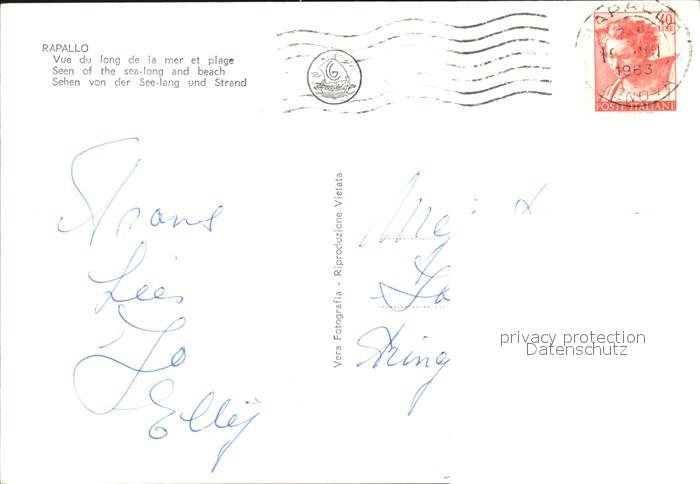 RAPALLO
Vue du long de la mer et plage
Seen of the sea-long and beach
Sehen von der See-lang und Strand
40
LIRE
1963
POSTE ITALIANE
Vera Fotografia - Riproduzione Vietata
Frans
Lies
Jo
Elly
privacy protection
Datenschutz